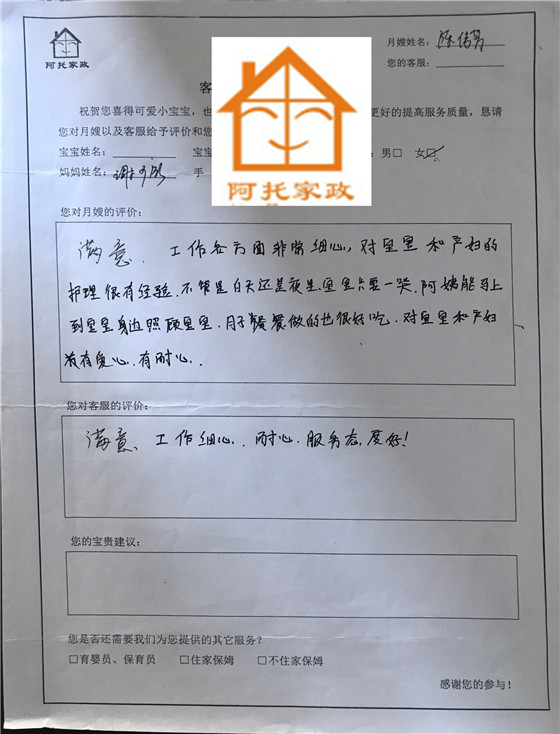 阿托家政
阿托家政
月嫂姓名：陈
您的客服：
客
祝贺您喜得可爱小宝宝，也
更好的提高服务质量，恳请
您对月嫂以及客服给予评价和您
宝宝姓名： 宝宝
：男□ 女☑
妈妈姓名：谢 手
您对月嫂的评价：
满意、工作各方面非常细心，对星星和产妇的
护理很有经验，不管是白天还是夜里，星星只要一哭，阿姨能马上
到星星身边照顾星星，月子餐做的也很好吃，对星星和产妇
有爱心，有耐心．
您对客服的评价：
满意、工作细心、耐心、服务态度好！
您的宝贵建议：
您是否还需要我们为您提供的其它服务？
□育婴员、保育员 □住家保姆 □不住家保姆
感谢您的参与！